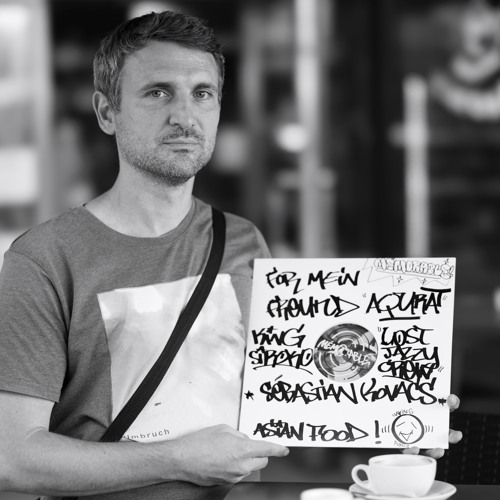 FOR MEIN
FREUND "AQURAT"
KING
SIROKO
MEMORABLE
"LOST
JAZZY
CREW"
* SEBASTIAN KOVACS *
ASIAN FOOD!
lmbruch